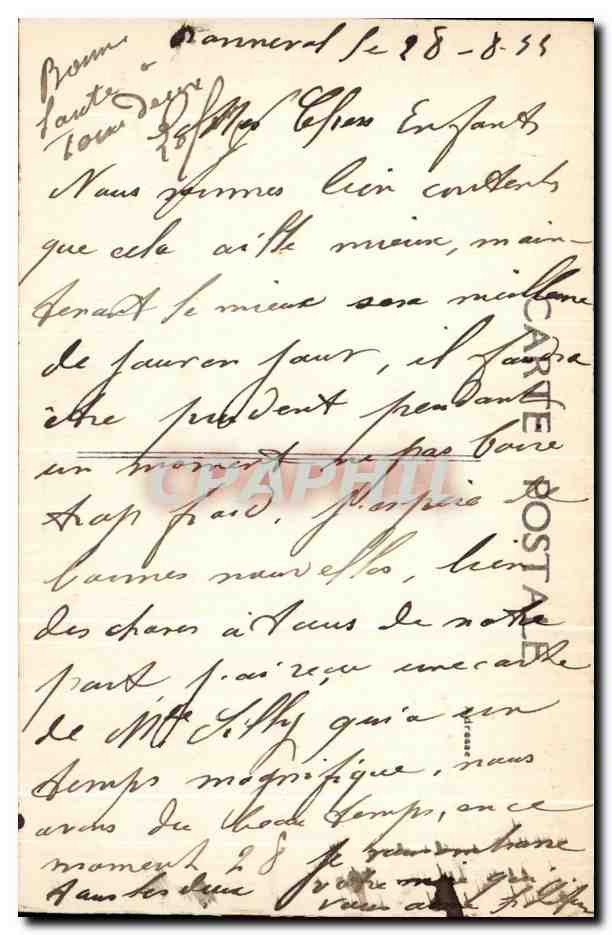 Bonneval le 28-8-55
Bonne
Santé à
tous deux
Mes Chers Enfants
Nous sommes bien contents
que cela aille mieux, main-
tenant le mieux sera meilleure
de jour en jour, il faudra
être prudent pendant
un moment ne pas boire
trop froid, j'espère de
bonnes nouvelles, bien
des choses à tous de notre
part j'ai reçu une carte
de Mme Silly qui a un
temps magnifique, nous
avons du beau temps, en ce
moment 28 je
votre qui
tous les deux vous
CARTE POSTALE
Adresse
CPAPHIL